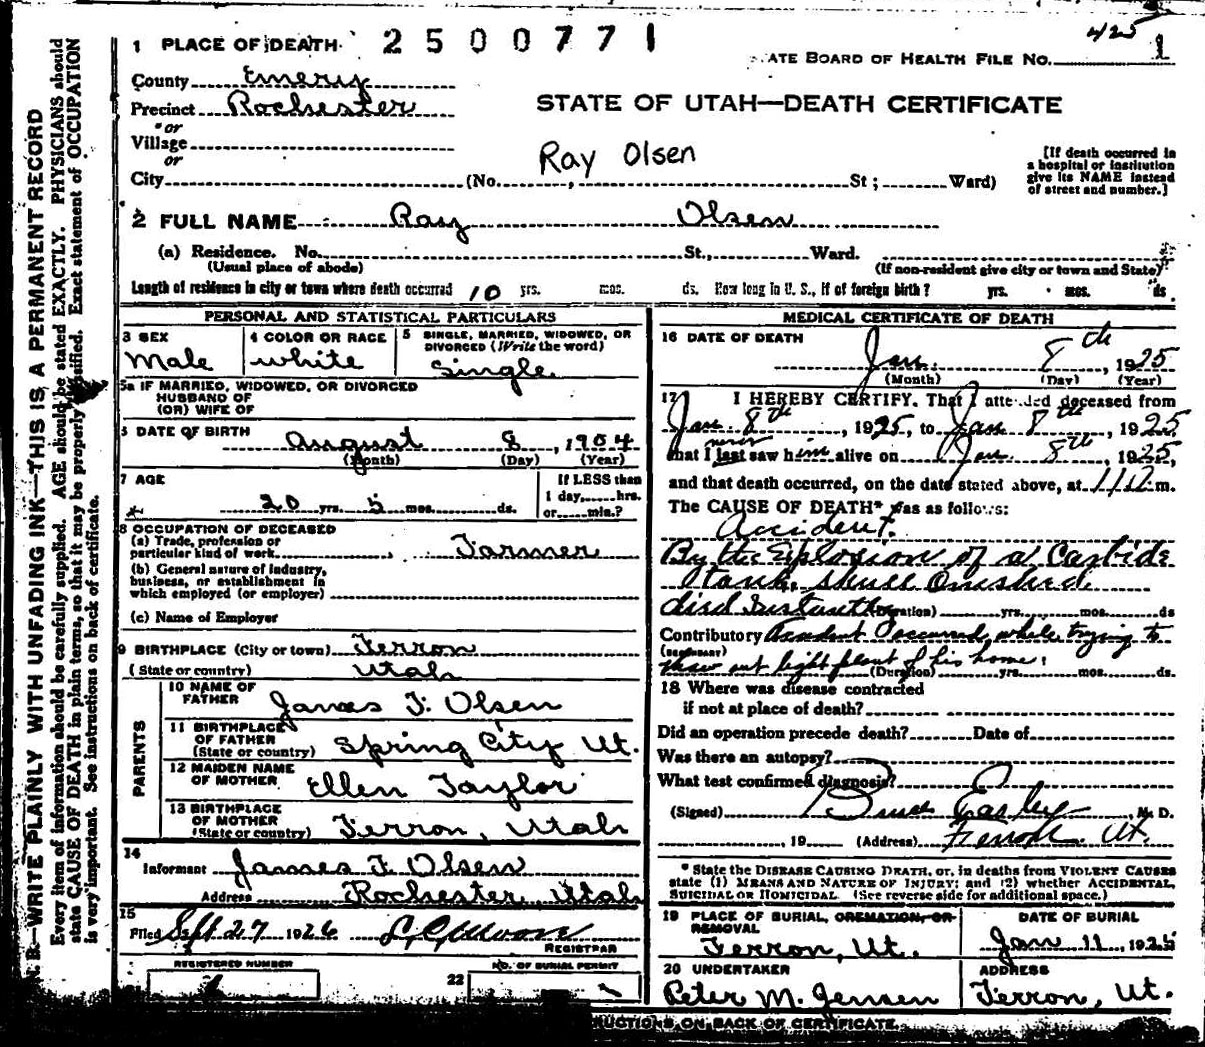 425
1 PLACE OF DEATH 2500771
ATE BOARD OF HEALTH FILE NO. 1
County Emery
STATE OF UTAH—DEATH CERTIFICATE
Precinct Rochester
or
Village
or
Ray Olsen
City (No. , St ; Ward)
[If death occurred in
a hospital or institution
give its NAME instead
of street and number.]
2 FULL NAME Ray Olsen
(a) Residence. No. St., Ward.
(Usual place of abode) (If non-resident give city or town and State)
Length of residence in city or town where death occurred 10 yrs. mos. ds. How long in U. S., if of foreign birth? yrs. mos. ds
PERSONAL AND STATISTICAL PARTICULARS
3 SEX
Male
4 COLOR OR RACE
white
5 SINGLE, MARRIED, WIDOWED, OR
DIVORCED (Write the word)
Single
5a IF MARRIED, WIDOWED, OR DIVORCED
HUSBAND OF
(OR) WIFE OF
DATE OF BIRTH August 8, 1904
(Month) (Day) (Year)
7 AGE
20 yrs. 5 mos. ds.
If LESS than
1 day, hrs.
or min.?
8 OCCUPATION OF DECEASED
(a) Trade, profession or
particular kind of work Farmer
(b) General nature of industry,
business, or establishment in
which employed (or employer)
(c) Name of Employer
9 BIRTHPLACE (City or town) Ferron
(State or country) Utah
PARENTS
10 NAME OF
FATHER James F. Olsen
11 BIRTHPLACE
OF FATHER
(State or country) Spring City Ut.
12 MAIDEN NAME
OF MOTHER Ellen Taylor
13 BIRTHPLACE
OF MOTHER
(State or country) Ferron, Utah
14
Informant James F. Olsen
Address Rochester Utah
15
Filed Sept 27 1926 L. C. Moore
REGISTRAR
REGISTERED NUMBER
1
22 NO. OF BURIAL PERMIT
1
MEDICAL CERTIFICATE OF DEATH
16 DATE OF DEATH
Jan. 8th, 1925
(Month) (Day) (Year)
17 I HEREBY CERTIFY, That I attended deceased from
Jan 8th, 1925, to Jan 8th, 1925,
never
that I last saw him alive on Jan. 8th, 1925,
and that death occurred, on the date stated above, at m.
The CAUSE OF DEATH* was as follows:
Accident.
By the Explosion of a Carbide
tank, skull Crushed
died (Duration) yrs. mos. ds
Contributory Accident Occurred while trying to
(SECONDARY)
thaw out light plant of his home. (Duration) yrs. mos. ds.
18 Where was disease contracted
if not at place of death?
Did an operation precede death? Date of
Was there an autopsy?
What test confirmed diagnosis?
(Signed) , M. D.
, 19 (Address) Ferron Ut.
* State the DISEASE CAUSING DEATH, or, in deaths from VIOLENT CAUSES
state (1) MEANS AND NATURE OF INJURY; and (2) whether ACCIDENTAL,
SUICIDAL OR HOMICIDAL. (See reverse side for additional space.)
19 PLACE OF BURIAL, CREMATION, OR
REMOVAL
Ferron, Ut.
DATE OF BURIAL
Jan 11, 1925
20 UNDERTAKER
Peter M. Jensen
ADDRESS
Ferron, Ut.
UCTIONS ON BACK OF CERTIFICATE
N. B.—WRITE PLAINLY WITH UNFADING INK—THIS IS A PERMANENT RECORD
Every item of information should be carefully supplied. AGE should be stated EXACTLY. PHYSICIANS should
state CAUSE OF DEATH in plain terms, so that it may be properly classified. Exact statement of OCCUPATION
is very important. See instructions on back of certificate.